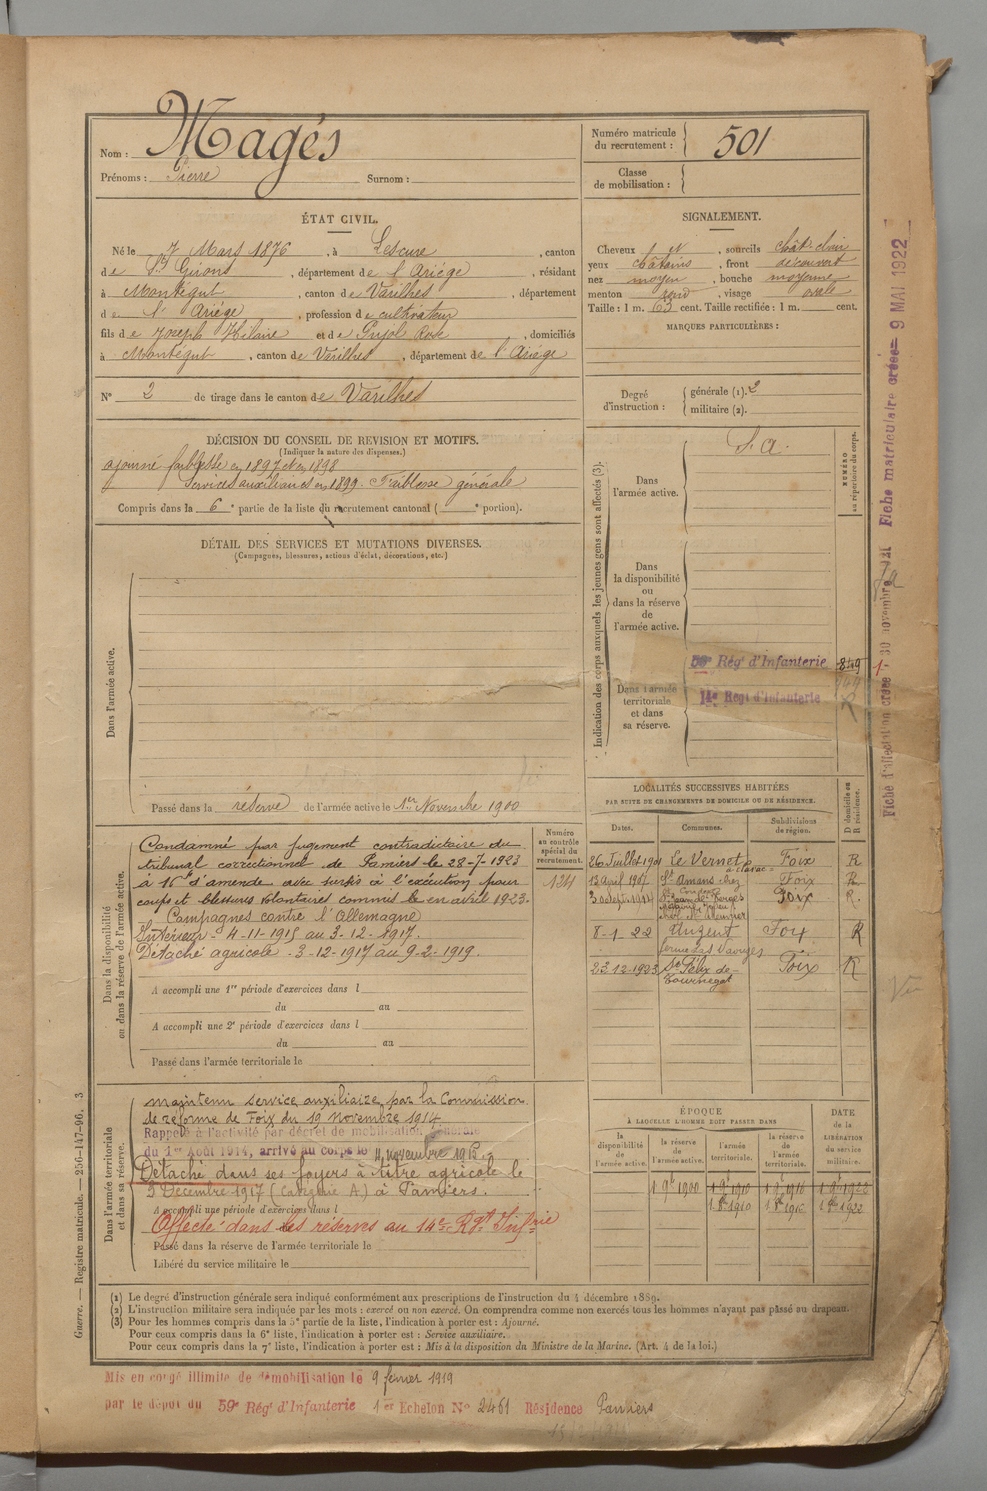 Nom : Magés
Prénoms : Pierre Surnom :
Numéro matricule du recrutement : 501
Classe de mobilisation :
ÉTAT CIVIL.
Né le 7 Mars 1876, à Lescure, canton
de St Girons, département de l'Ariège, résidant
à Montégut, canton de Varilhes, département
de l'Ariège, profession de cultivateur
fils de Joseph Hilaire et de Pujol Rose, domiciliés
à Montégut, canton de Varilhes, département de l'Ariège
N° 2 de tirage dans le canton de Varilhes
SIGNALEMENT.
Cheveux et, sourcils chât-clair
yeux châtains, front découvert
nez moyen, bouche moyenne
menton rond, visage ovale
Taille : 1 m. 63 cent. Taille rectifiée : 1 m. cent.
MARQUES PARTICULIÈRES :
Degré d'instruction : générale (1). 2
militaire (2).
DÉCISION DU CONSEIL DE REVISION ET MOTIFS.
(Indiquer la nature des dispenses.)
ajourné faiblesse en 1897 et en 1898
Services auxiliaires en 1899. Faiblesse générale
Compris dans la 6e partie de la liste du recrutement cantonal ( e portion).
DÉTAIL DES SERVICES ET MUTATIONS DIVERSES.
(Campagnes, blessures, actions d'éclat, décorations, etc.)
Dans l'armée active.
Passé dans la réserve de l'armée active le 1er Novembre 1900
Indication des corps auxquels les jeunes gens sont affectés (3).
NUMÉRO au répertoire du corps.
Dans l'armée active.
S. A.
Dans la disponibilité ou dans la réserve de l'armée active.
Dans l'armée territoriale et dans sa réserve.
59e Régt d'Infanterie 849
14e Régt d'Infanterie
Fiche matriculaire créée 9 MAI 1922
Fiche d'affectation créée 30 novembre 1921
Dans la disponibilité ou dans la réserve de l'armée active.
Numéro au contrôle spécial du recrutement.
124
Condamné par jugement contradictoire du
tribunal correctionnel de Pamiers le 28-7-1923
à 16f d'amende avec sursis à l'exécution pour
coups et blessures volontaires commis le en avril 1923.
Campagnes contre l'Allemagne
Intérieur - 4-11-1915 au 3-12-1917.
Détaché agricole - 3-12-1917 au 9-2-1919.
A accompli une 1re période d'exercices dans l
du au
A accompli une 2e période d'exercices dans l
du au
Passé dans l'armée territoriale le
LOCALITÉS SUCCESSIVES HABITÉES
PAR SUITE DE CHANGEMENTS DE DOMICILE OU DE RÉSIDENCE.
Dates. Communes. Subdivisions de région. D domicile ou R résidence.
26 Juillet 1901 Le Vernet Foix R
13 avril 1907 St Amans chez Foix R
3 août 1914 St Jean de Verges Foix R.
8-1-22 Unzent Foix R
23-12-1923 St Félix de Tournegat Foix R
Dans l'armée territoriale et dans sa réserve.
maintenu service auxiliaire par la Commission
de réforme de Foix du 19 Novembre 1914
Rappelé à l'activité par décret de mobilisation générale
du 1er Août 1914, arrivé au corps le 4 novembre 1915.
Détaché dans ses foyers à titre agricole le
3 Décembre 1917 (Catégorie A.) à Pamiers.
A accompli une période d'exercices dans l
Affecté dans les réserves au 14e Rgt Infrie
Passé dans la réserve de l'armée territoriale le
Libéré du service militaire le
ÉPOQUE
À LAQUELLE L'HOMME DOIT PASSER DANS
la disponibilité de l'armée active. la réserve de l'armée active. l'armée territoriale. la réserve de l'armée territoriale.
DATE de la LIBÉRATION du service militaire.
1 9bre 1900 1 9bre 1910 1 9bre 1916 1 9bre 1922
1 8bre 1910 1 8bre 1916 1 8bre 1922
(1) Le degré d'instruction générale sera indiqué conformément aux prescriptions de l'instruction du 4 décembre 1889.
(2) L'instruction militaire sera indiquée par les mots : exercé ou non exercé. On comprendra comme non exercés tous les hommes n'ayant pas passé au drapeau.
(3) Pour les hommes compris dans la 5e partie de la liste, l'indication à porter est : Ajourné.
Pour ceux compris dans la 6e liste, l'indication à porter est : Service auxiliaire.
Pour ceux compris dans la 7e liste, l'indication à porter est : Mis à la disposition du Ministre de la Marine. (Art. 4 de la loi.)
Guerre. — Registre matricule. — 256-147-96. 3
Mis en congé illimité de démobilisation le 9 février 1919
par le dépôt du 59e Régt d'Infanterie 1er Echelon N° 2461 Résidence Pamiers